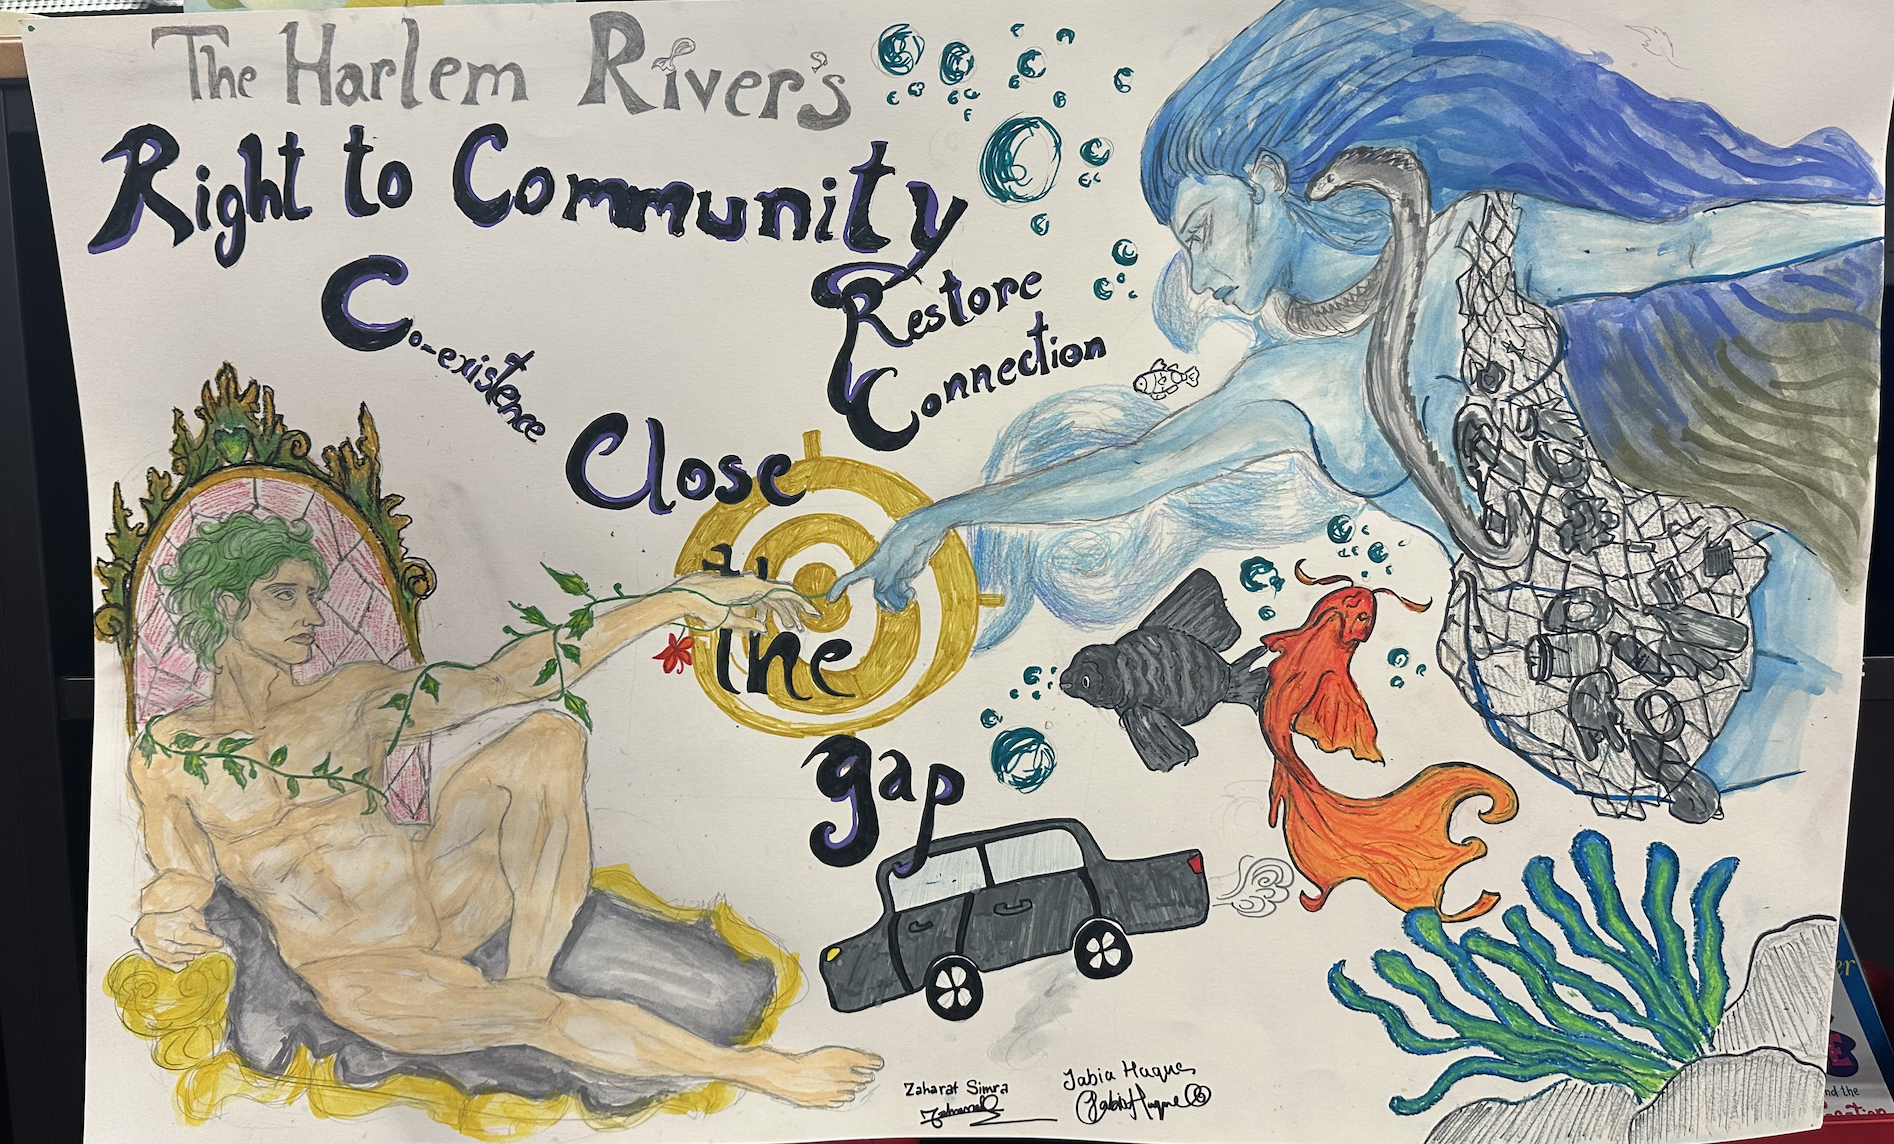 The Harlem River's
Right to Community
Co-existence
Restore
Connection
Close
the
gap
Zaharat Simra
Jabia Haque
nd the